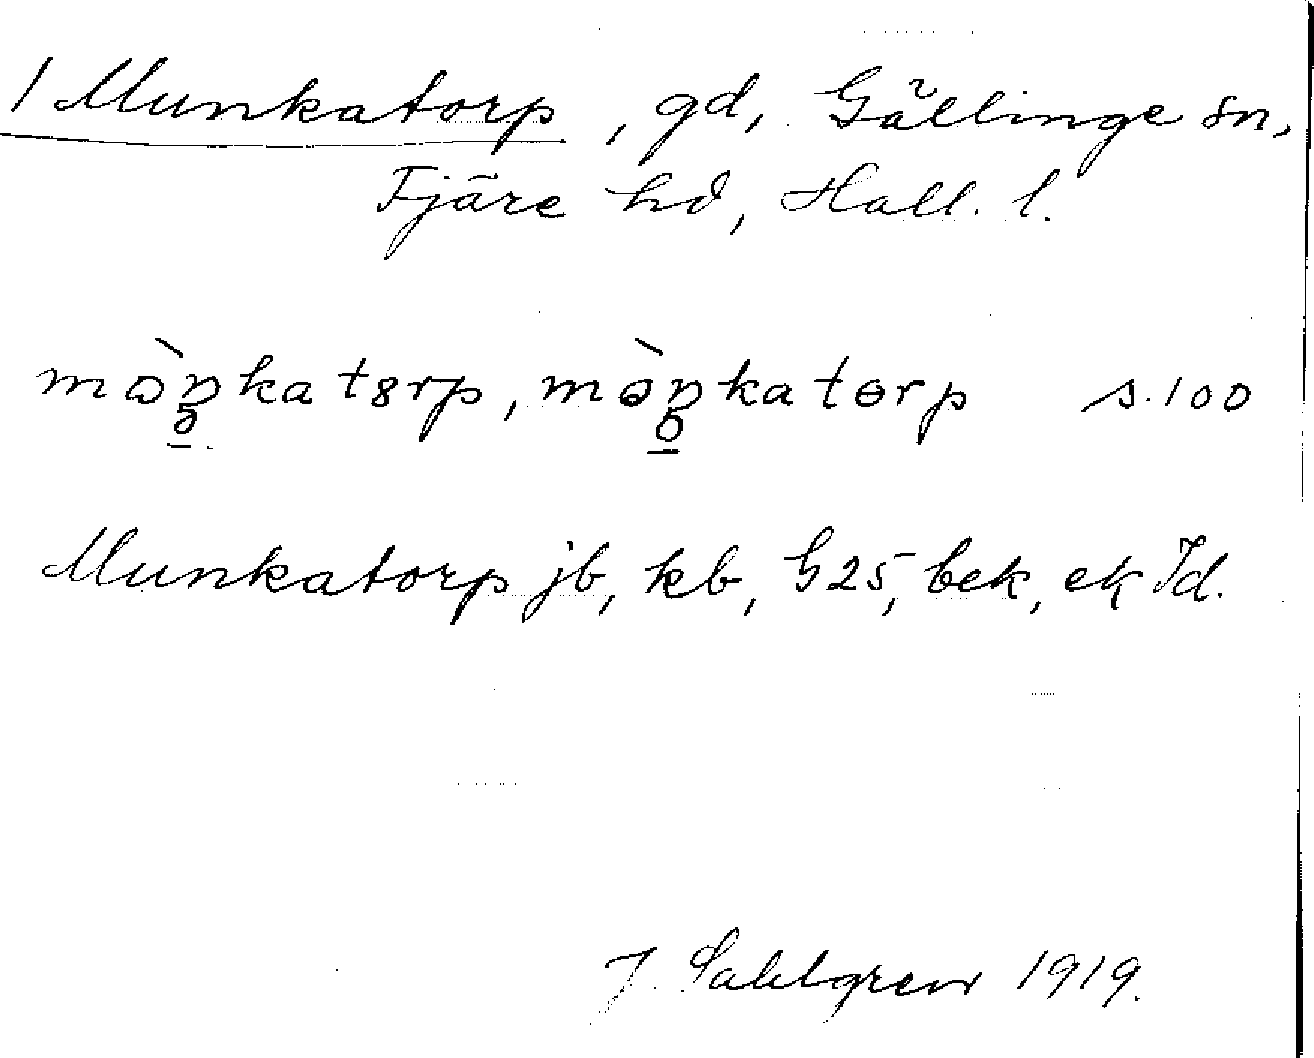 1 Munkatorp, gd, Gällinge sn,
Fjäre hd, Hall. l.
s. 100
Munkatorp jb, kb, G25, bek, ek Id.
J. Sahlgren 1919.